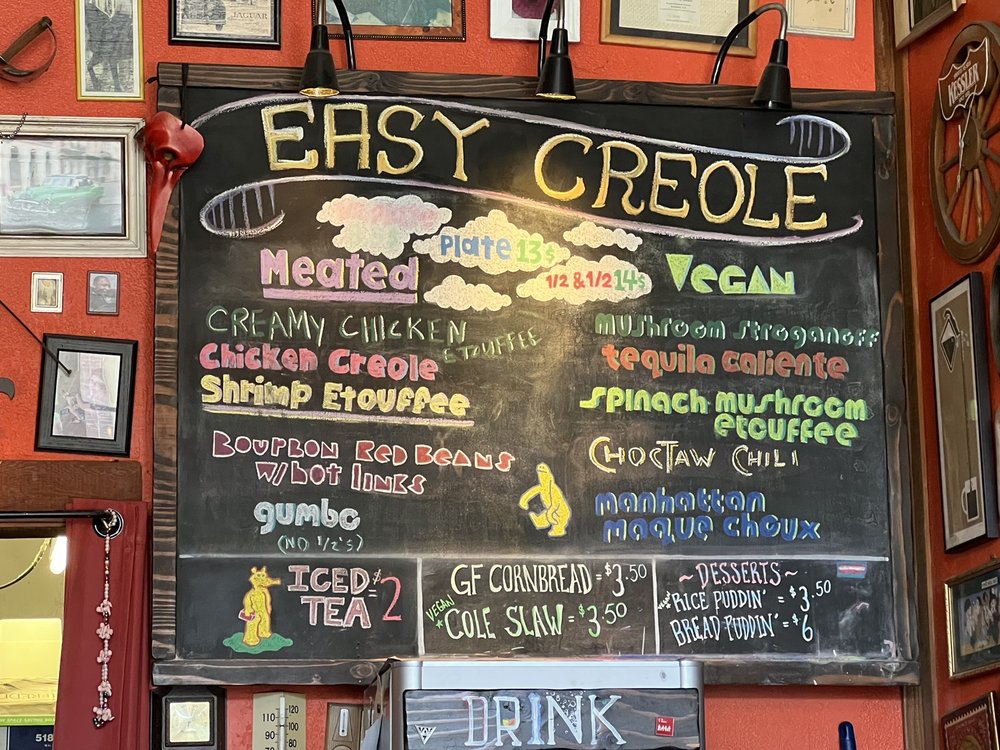 JAGUAR
WESSLER
EASY CREOLE
Plate 13$
1/2 & 1/2 14$
Meated
CREAMY CHICKEN
ETOUFFEE
Chicken Creole
Shrimp Etouffee
BOURBON RED BEANS
W/HOT LINKS
gumbo
(NO 1/2'S)
VEGAN
mushroom stroganoff
tequila caliente
spinach mushroom
etouffee
CHOCTAW CHILI
manhattan
maque choux
ICED
TEA = $2
GF CORNBREAD = $3.50
VEGAN
* COLE SLAW = $3.50
~DESSERTS~
RICE PUDDIN' = $3.50
BREAD PUDDIN' = $6
DRINK
110
100
90
80
120
100
80
518